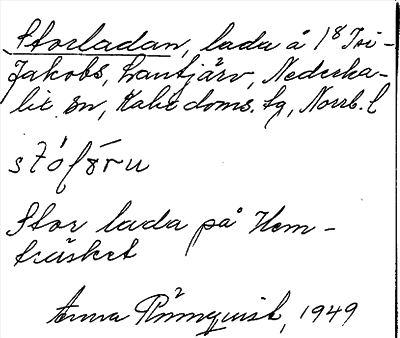 Storladan, lada å 1⁸ Tri-
Jakobs, Lantjärv, Nederka-
lix sn, Kalix doms. tg, Norrb. l
Stor lada på Hem-
träsket
Anna Rönnquist, 1949